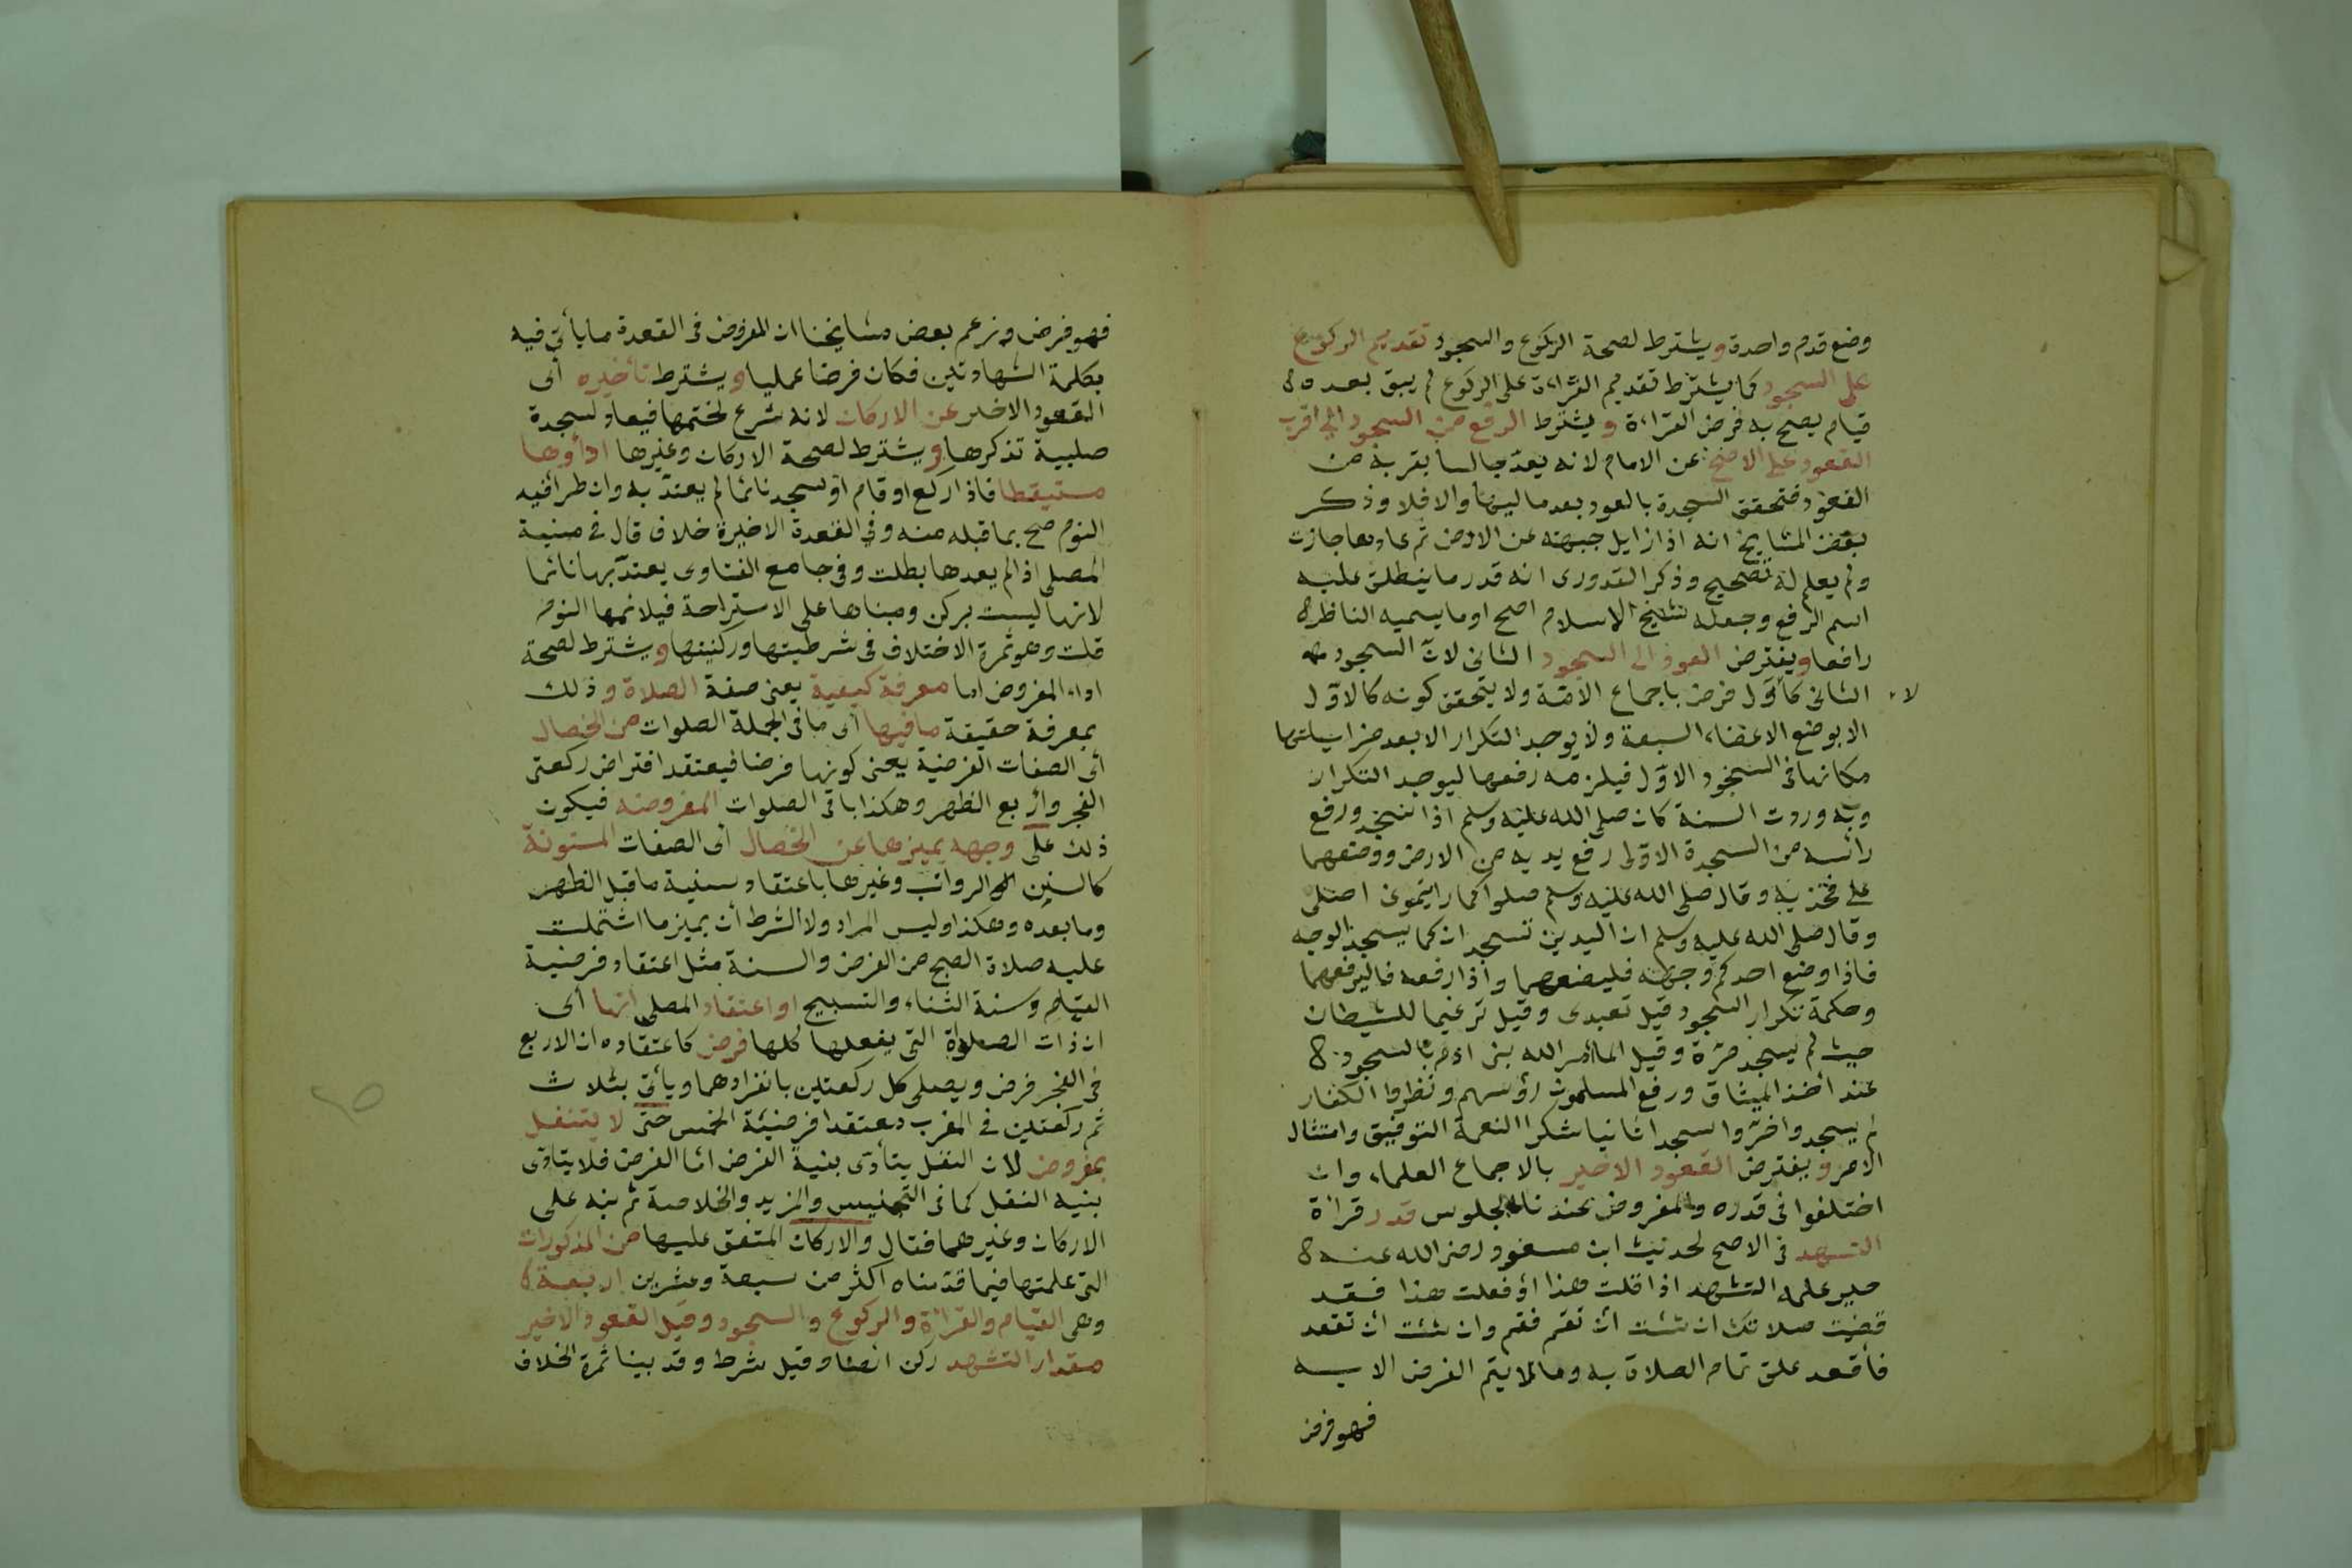 وضع قدم واحدة ويشترط لصحة الركوع والسجود تقديم الركوع
على السجود كما يشترط تقديم القراءة على الركوع لم يبق بعده
قيام يصح به فرض القراءة ويشترط الرفع من السجود الى قرب
القعود على الاصح عن الامام لانه يعد جالسا بقربه من
القعود فتحقق السجدة بالعود بعده اليها والا فلا وذكر
بعض المشايخ انه اذا زايل جبهته عن الارض ثم عادها جازت
ولم يعلم له تصحيح وذكر القدورى انه قدر ما ينطلق عليه
اسم الرفع وجعله شيخ الاسلام اصح او ما يسميه الناظر
رافعا ويفترض العود الى السجود الثانى لان السجود
الثانى كالأول فرض باجماع الامة ولا يتحقق كونه كالاول
لا
الا بوضع الاعضاء السبعة ولا يوجد التكرار الا بعد مزايلتها
مكانها فى السجود الاول فيلزمه رفعها ليوجد التكرار
وبه وردت السنة كان صلى الله عليه وسلم اذا سجد ورفع
رأسه من السجدة الاولى رفع يديه من الارض ووضعهما
على فخذيه وقال صلى الله عليه وسلم صلوا كما رايتمونى اصلى
وقال صلى الله عليه وسلم ان اليدين تسجدان كما يسجد الوجه
فاذا وضع احدكم وجهه فليضعهما واذا رفعه فاليرفعهما
وحكمة تكرار السجود قيل تعبدى وقيل ترغيما للشيطان
حيث لم يسجد مرة وقيل لما أمر الله بنى ادم بالسجود
عند أخذ الميثاق ورفع المسلمون رؤسهم ونظروا الكفار
لم يسجدوا خروا سجدا ثانيا شكرا لنعمة التوفيق وامتثال
الامر ويفترض القعود الاخير بالاجماع العلماء وان
اختلفوا فى قدره والمفروض عندنا الجلوس قدر قراءة
التشهد فى الاصح لحديث ابن مسعود رضى الله عنه
حين علمه التشهد اذا قلت هذا أو فعلت هذا فقد
قضيت صلاتك ان شئت أن تقم فقم وان شئت ان تقعد
فأقعد علق تمام الصلاة به وما لا يتم الفرض الا به
فهو فرض
فهو فرض وزعم بعض مشايخنا ان المفروض فى القعدة ما يأتى فيه
بكلمة الشهادتين فكان فرضا عمليا ويشترط تأخيره أى
القعود الاخير عن الاركان لانه شرع لختمها فيعاد لسجدة
صلبية تذكرها ويشترط لصحة الاركان وغيرها اداؤها
مستيقظا فاذا ركع او قام او سجد نائما لم يعتد به وان طرأ فيه
النوم صح بما قبله منه وفى القعدة الاخيرة خلاف قال فى منية
المصلى اذا لم يعدها بطلت وفى جامع الفتاوى يعتد بها نائما
لانها ليست بركن ومبناها على الاستراحة فيلائمها النوم
قلت وهو ثمرة الاختلاف فى شرطيتها وركنيتها ويشترط لصحة
اداء المفروض اما معرفة كيفية يعنى صفة الصلاة وذلك
بمعرفة حقيقة ما فيها أى ما فى الجملة الصلوات من الخصال
أى الصفات الفرضية يعنى كونها فرضا فيعتقد افتراض ركعتى
الفجر واربع الظهر وهكذا باقى الصلوات المفروضه فيكون
ذلك على وجهه يميزها عن الخصال أى الصفات المسنونة
كالسنن الرواتب وغيرها باعتقاد سنية ما قبل الظهر
وما بعده وهكذا وليس المراد ولا الشرط أن يميز ما اشتملت
عليه صلاة الصبح من الفرض والسنة مثل اعتقاد فرضية
القيام وسنة الثناء والتسبيح او اعتقاد المصلى انها أى
ان ذات الصلاة التى يفعلها كلها فرض كاعتقاده ان الاربع
فى الفجر فرض ويصلى كل ركعتين بانفرادهما ويأتى بثلاث
ثم ركعتين فى المغرب معتقدا فرضية الخمس حتى لا يتنفل
بمفروض لان النفل يتأدى بنية الفرض اما الفرض فلا يتأدى
بنيه النفل كما فى التجنيس والمزيد والخلاصة ثم نبه على
الاركان وغيرهما فقال والاركان المتفق عليها من المذكورات
التى علمتها فيما قدمناه اكثر من سبعة وعشرين اربعة
وهى القيام والقراءة والركوع والسجود وقيل القعود الاخير
مقدار التشهد ركن ايضا وقيل شرط وقد بينا ثمرة الخلاف